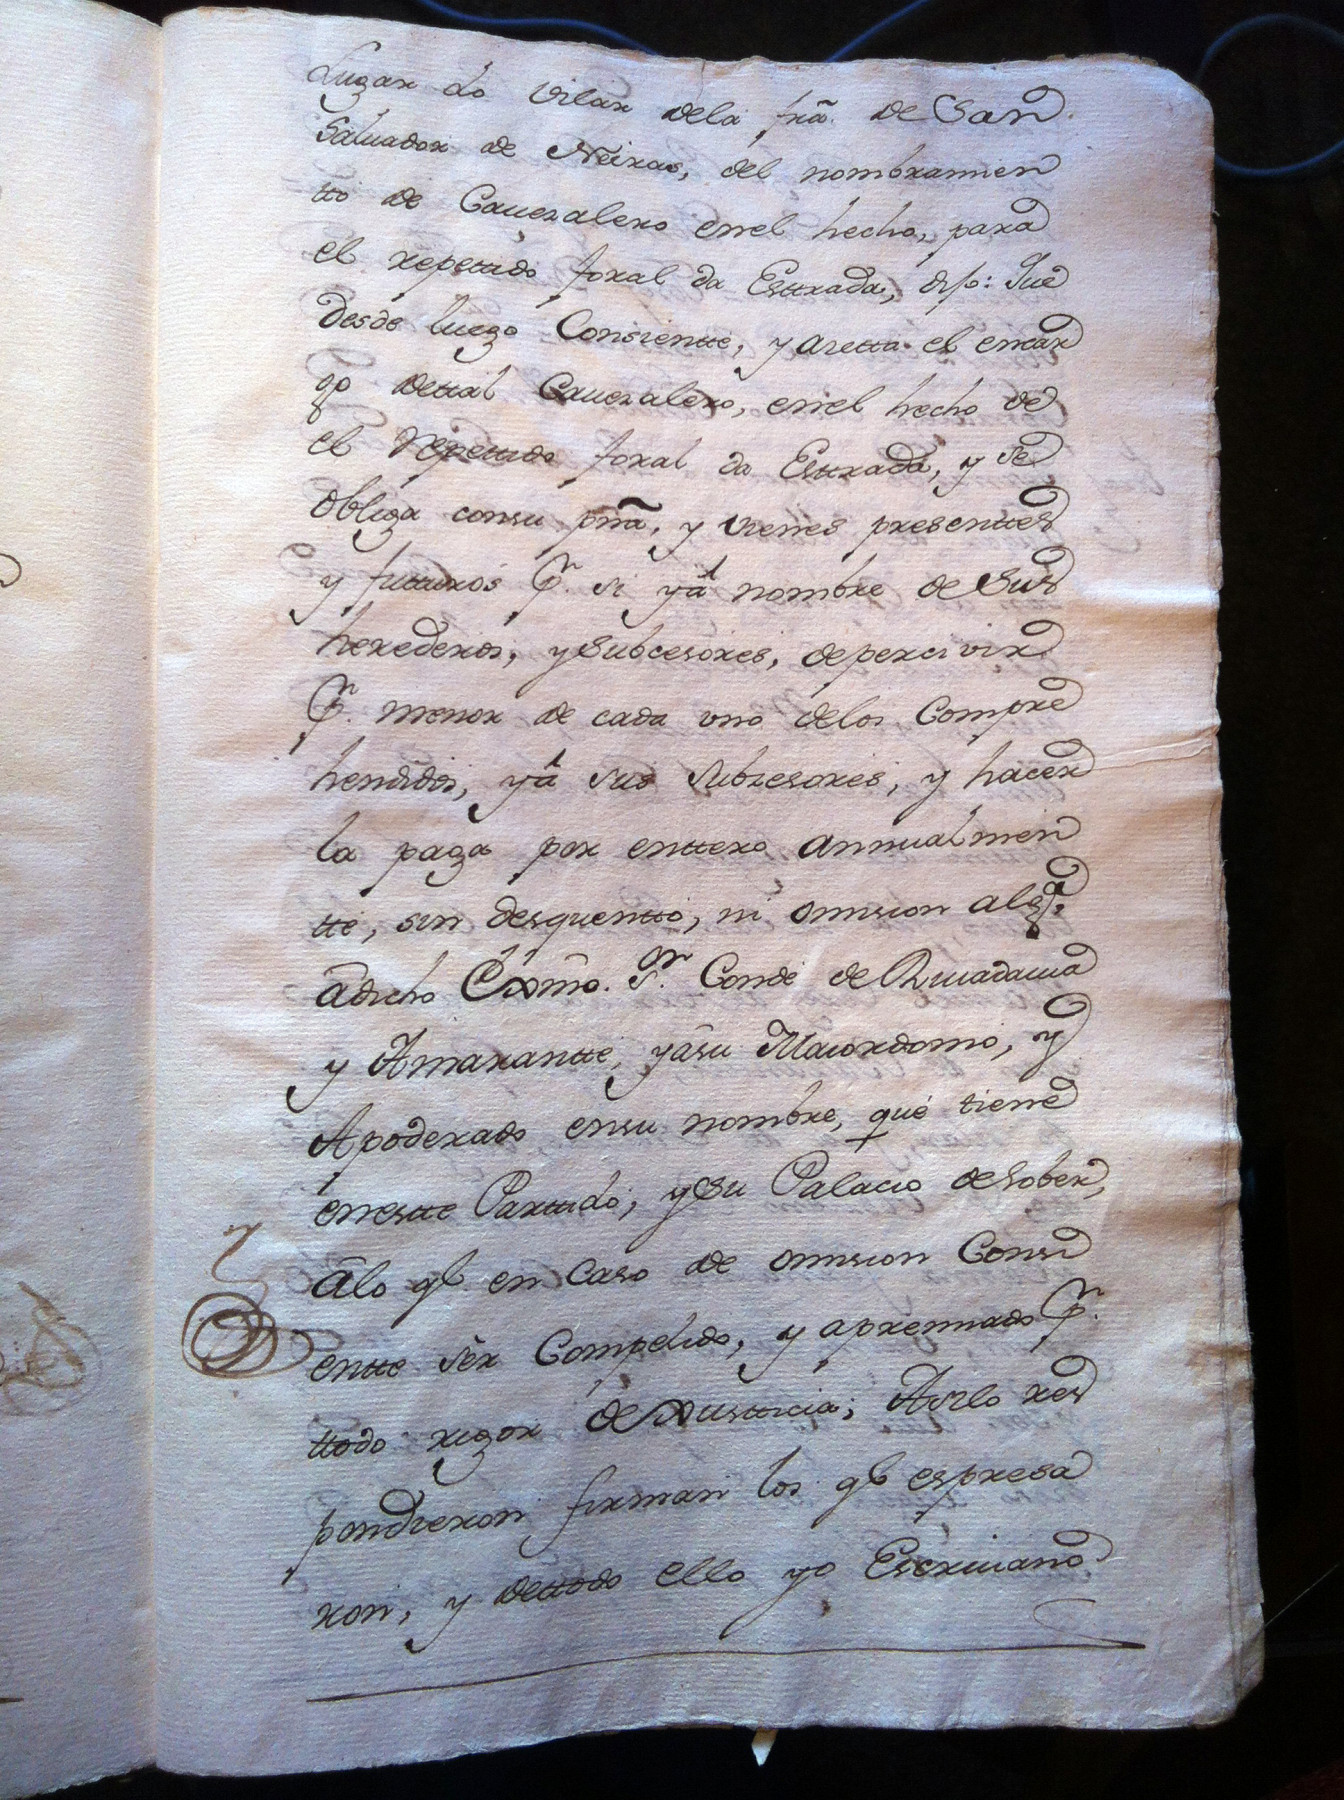 Lugar do Vilar dela frã. de San
Salvador de Neiras, del nombramien
tto de Cavezalero enel hecho, para
el repettido foral da Esttrada, dijo: Que
desde luego Consientte, y azetta el encar
go dettal Cavezalero, enel hecho de
el Repettido foral da Esttrada, y se
obliga consu pnã, y vienes presenttes
y futturos Pr. si yá nombre de Sus
herederos, ySubcesores, depercivir
Pr. menor de cada vno delos Compre
hendidos, yá sus Subzesores, y hacer
la paga por enttero annualmen
tte, sin desquentto, ni omision algª.
ãdicho Exmo. Sr. Conde de Rivadavia
y Amarantte, yãsu Maiordomo, y
Apoderado ensu nombre, que tiene
enestte Parttido, ySu Palacio deSober,
ãlo ql. en Caso de omision Consi
entte sér Compelido, y apremiado Pr.
ttodo rigor deXustticia; Asilo res
pondieron firman los ql espresa
ron, y dettodo ello yo Escrivano